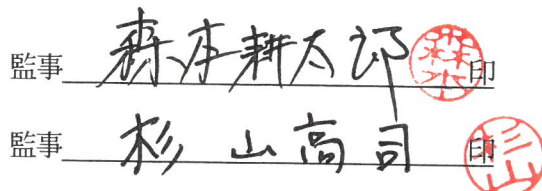 監事 森本耕太郎 印
監事 杉山高司 印